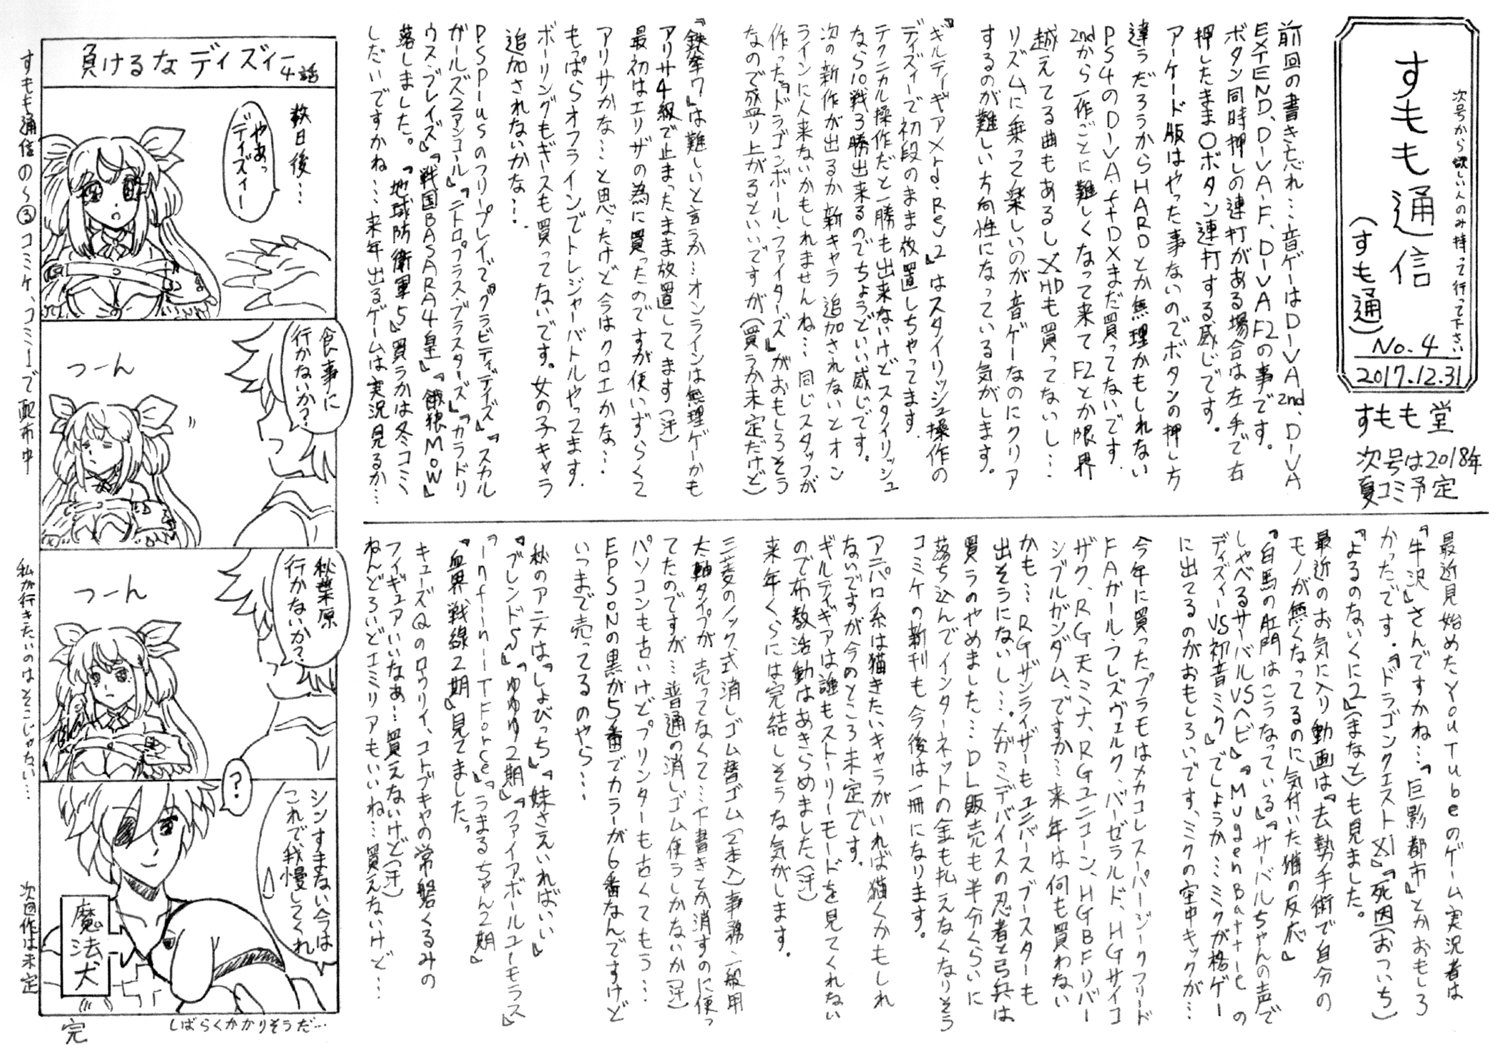 次号から欲しい人のみ持って行って下さい
すもも通信
(すも通)
No.4
2017.12.31
すもも堂
次号は2018年
夏コミ予定
前回の書き忘れ…音ゲーはDIVA2nd、DIVA
EXTEND、DIVA-F、DIVAF2の事です。
ボタン同時押しの連打がある場合は左手で右
押したまま○ボタン連打する感じです。
アーケード版はやった事ないのでボタンの押し方
違うだろうからHARDとか無理かもしれない
PS4のDIVAftDXまだ買ってないです。
2ndから一作ごとに難しくなって来てF2とか限界
越えてる曲もあるしXHDも買ってないし…
リズムに乗って楽しいのが音ゲーなのにクリア
するのが難しい方向性になっている気がします。
『ギルティギアXrd・Rev2』はスタイリッシュ操作の
ディズィーで初段のまま放置しちゃってます
テクニカル操作だと一勝も出来ないけどスタイリッシュ
なら10戦3勝出来るのでちょうどいい感じです。
次の新作が出るか新キャラ追加されないとオン
ラインに人来ないかもしれませんね…同じスタッフが
作った『ドラゴンボール・ファイターズ』がおもしろそう
なので盛り上がるといいですが(買うか未定だけど)
『鉄拳7』は難しいと言うか…オンラインは無理ゲーかも
アリサ4級で止まったまま放置してます(汗)
最初はエリザの為に買ったのですが使いずらくて
アリサかな…と思ったけど今はクロエかな…
もっぱらオフラインでトレジャーバトルやってます。
ボーリングもギースも買ってないです。女の子キャラ
追加されないかな…
PSPlusのフリープレイで『グラビティデイズ』『スカル
ガールズ2アンコール』『ニトロプラス・ブラスターズ』『カラドリ
ウス・ブレイズ』『戦国BASARA4皇』『餓狼MOW』
落しました。『地球防衛軍5』買うかは冬コミ
しだいですかね…来年出るゲームは実況見るか…
最近見始めたYouTubeのゲーム実況者は
『牛沢』さんですかね…『巨影都市』とかおもしろ
かったです。『ドラゴンクエストXI』『死因(おついち)』
『よるのないくに2(まなと)』も見ました。
最近のお気に入り動画は『去勢手術で自分の
モノが無くなってるのに気付いた猫の反応』
『白馬の肛門はこうなっている』『サーバルちゃんの声で
しゃべるサーバルVSヘビ』『MugenBattleの
ディズィーVS初音ミク』でしょうか…ミクが格ゲー
に出てるのがおもしろいです、ミクの空中キックが…
今年に買ったプラモはメカコレスーパージークフリード
FAガール・フレズヴェルク、バーゼラルド、HGサイコ
ザク、RG天ミナ、RGユニコーン、HGBFリバー
シブルガンダム、ですか…来年は何も買わない
かも…RGザンライザーもユニバースブースターも
出そうにないし…だがミデバイスの忍者と弓兵は
買うのやめました…DL販売も半分くらいに
落ち込んでインターネットの金も払えなくなりそう
コミケの新刊も今後は一冊になります。
アニパロ系は描きたいキャラがいれば描くかもしれ
ないですが今のところ未定です。
ギルティギアは誰もストーリーモードを見てくれない
ので布教活動はあきらめました(汗)
来年くらには完結しそうな気がします。
三菱のノック式消しゴム替ゴム(2本入)事務一般用
太軸タイプが売ってなくて…下書きとか消すのに使っ
てたのですが…普通の消しゴム使うしかないか(汗)
パソコンも古いけどプリンターも古くてもう…
EPSONの黒が5番でカラーが6番なんですけど
いつまで売ってるのやら…
秋のアニメは『しょびっち』『妹さえいればいい』
『ブレンドS』『ゆゆゆ2期』『ファイアボールユーモラス』
『infiniTForce』『うまるちゃん2期』
『血界戦線2期』見てました。
キューズQのロウリィ、コトブキヤの常磐くるみの
フィギュアいいなぁ…買えないけど(汗)
ねんどろいどエミリアもいいね…買えないけど…
負けるなディズィー4話
数日後…
やあっ
ディズィー
食事に
行かないか?
つーん
秋葉原
行かないか?
つーん
?
シンすまない今は
これで我慢してくれ
魔法犬
しばらくかかりそうだ…
完
すもも通信の~③コミケ、コミ1で配布中
私が行きたいのはそこじゃない…
次回作は未定